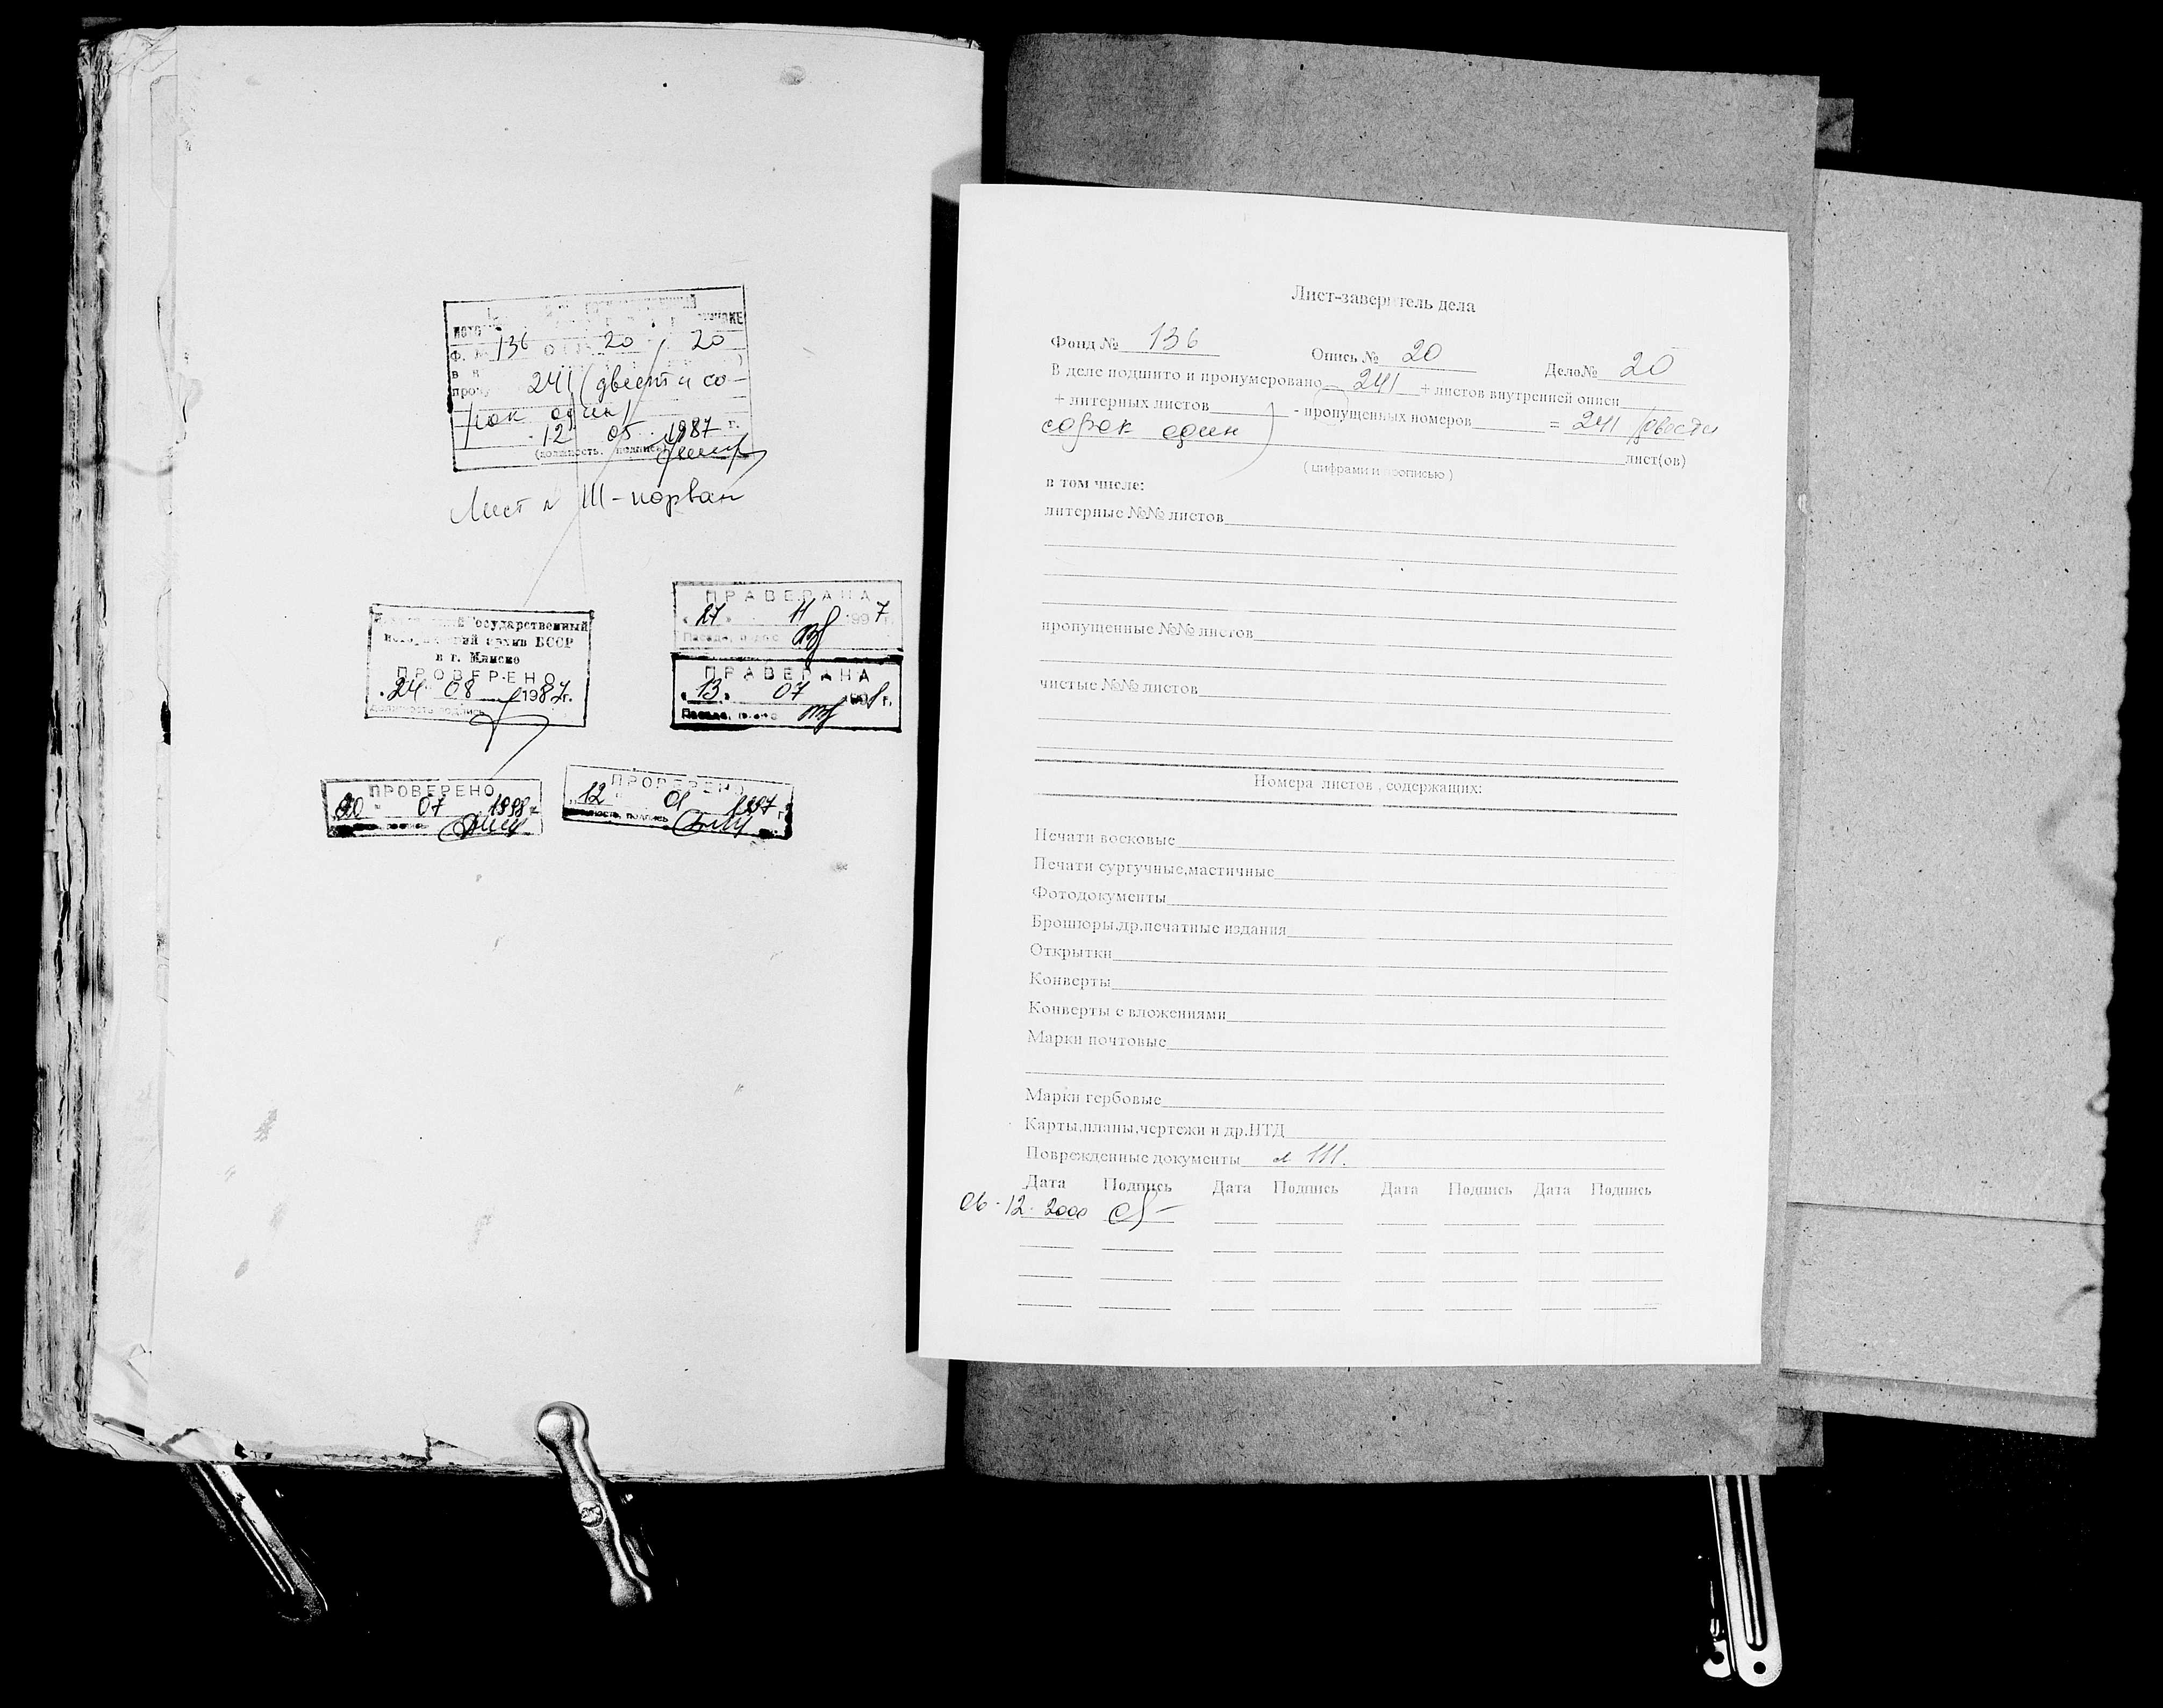 Ф. № 136 оп. 20 20
241 (двести со-
рок один)
12 05 1987 г.
(должность, подпись)
Лист № 111 - порван
государственный
исторический архив БССР
в г. Минске
ПРОВЕРЕНО
24 08 1987г.
должность подпись
ПРАВЕРАНА
« 27 » 11 1997 г.
Пасада, подпіс
ПРАВЕРАНА
« 13 » 07 г.
Пасада, подпіс
ПРОВЕРЕНО
07
ПРОВЕРЕНО
12
подпись
Лист-заверитель дела
Фонд № 136 Опись № 20 Дело№ 20
В деле подшито и пронумеровано 241 + листов внутренней описи
+ литерных листов - пропущенных номеров = 241 (двести
сорок один) лист(ов)
( цифрами и прописью )
в том числе:
литерные №№ листов
пропущенные №№ листов
чистые №№ листов
Номера листов , содержащих:
Печати восковые
Печати сургучные,мастичные
Фотодокументы
Брошюры,др.печатные издания
Открытки
Конверты
Конверты с вложениями
Марки почтовые
Марки гербовые
Карты,планы,чертежи и др.НТД
Поврежденные документы л 111.
Дата Подпись Дата Подпись Дата Подпись Дата Подпись
06.12.2000